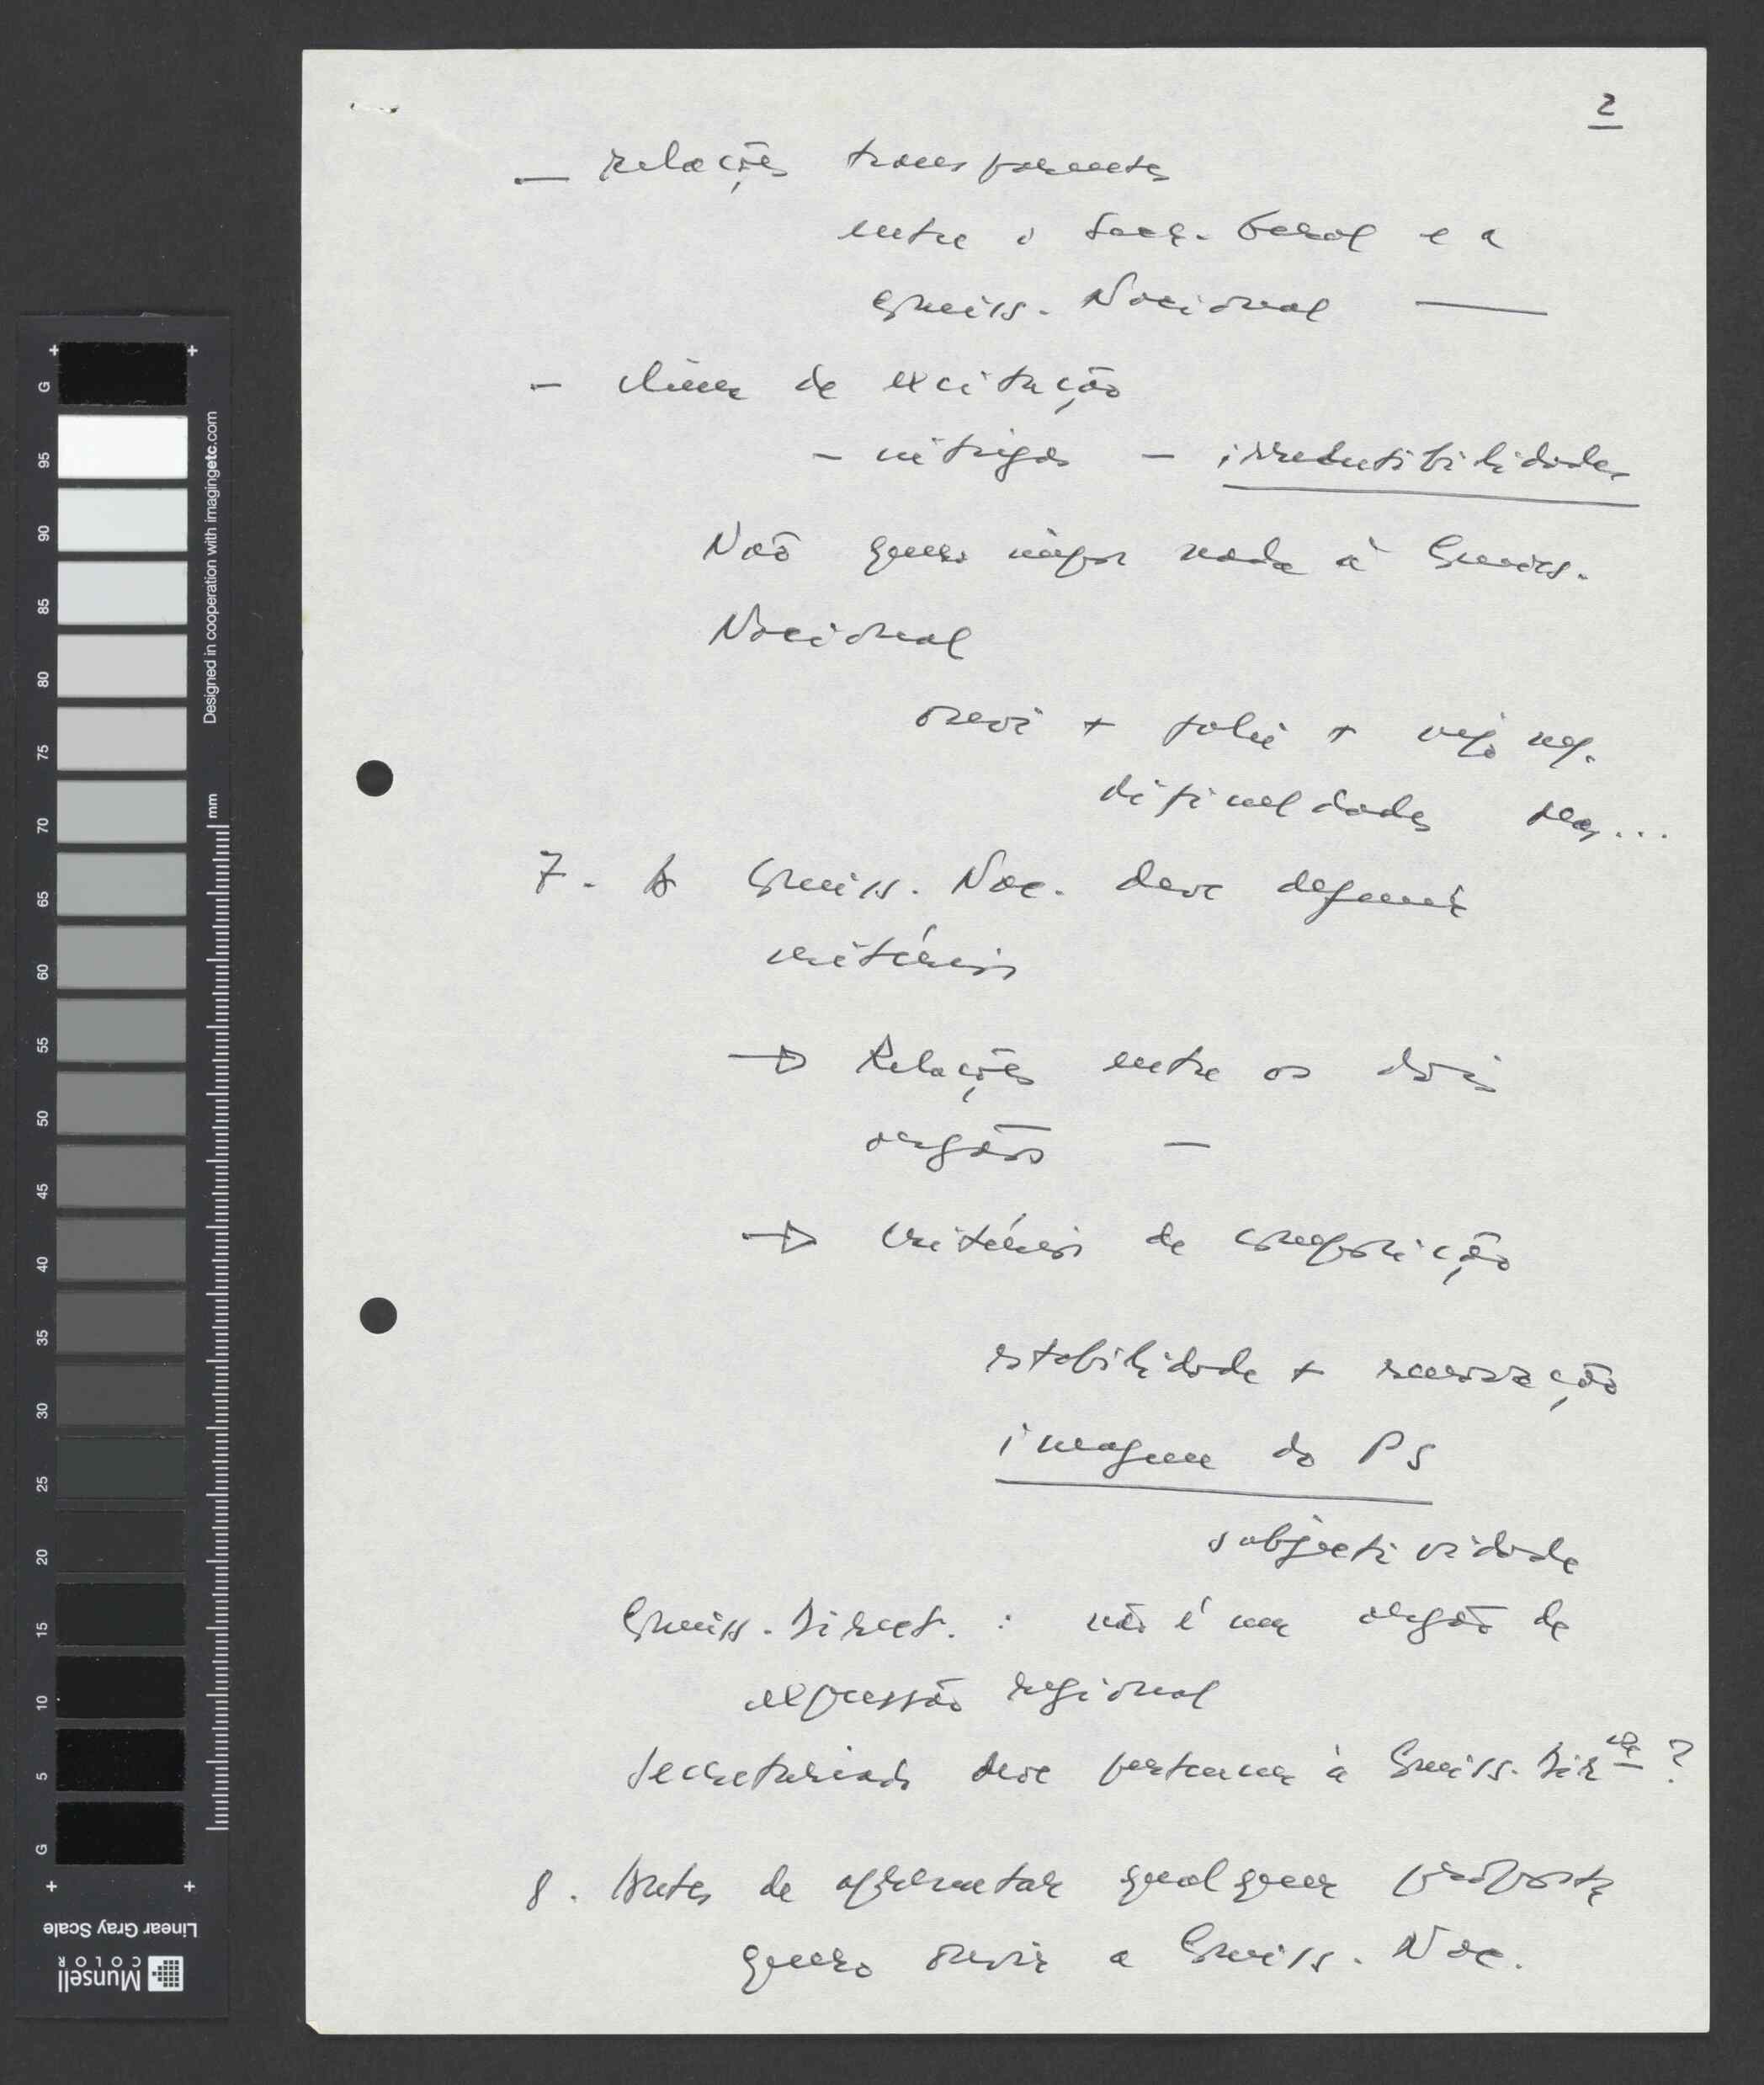 2
— relações transparentes
entre o Secr. Geral e a
Comiss. Nacional —
- clima de excitação
- intrigas - irredutibilidades
Não quero impor nada à Comiss.
Nacional
ouvi + falei + vejo
dificuldades
7. A Comiss. Nac. deve definir
critérios
→ Relações entre os dois
orgãos —
→ Critérios de composição
estabilidade + renovação
imagem do PS
subjectividade
Comiss. Direct. : não é um orgão de
expressão regional
Secretariado deve pertencer à Comiss. Dir ?
8. Antes de apresentar qualquer proposta
quero ouvir a Comiss. Nac.
G
95
90
85
80
75
70
65
60
55
50
45
40
35
30
25
20
15
10
5
G
mm
Designed in cooperation with imagingetc.com
Linear Gray Scale
Munsell
COLOR